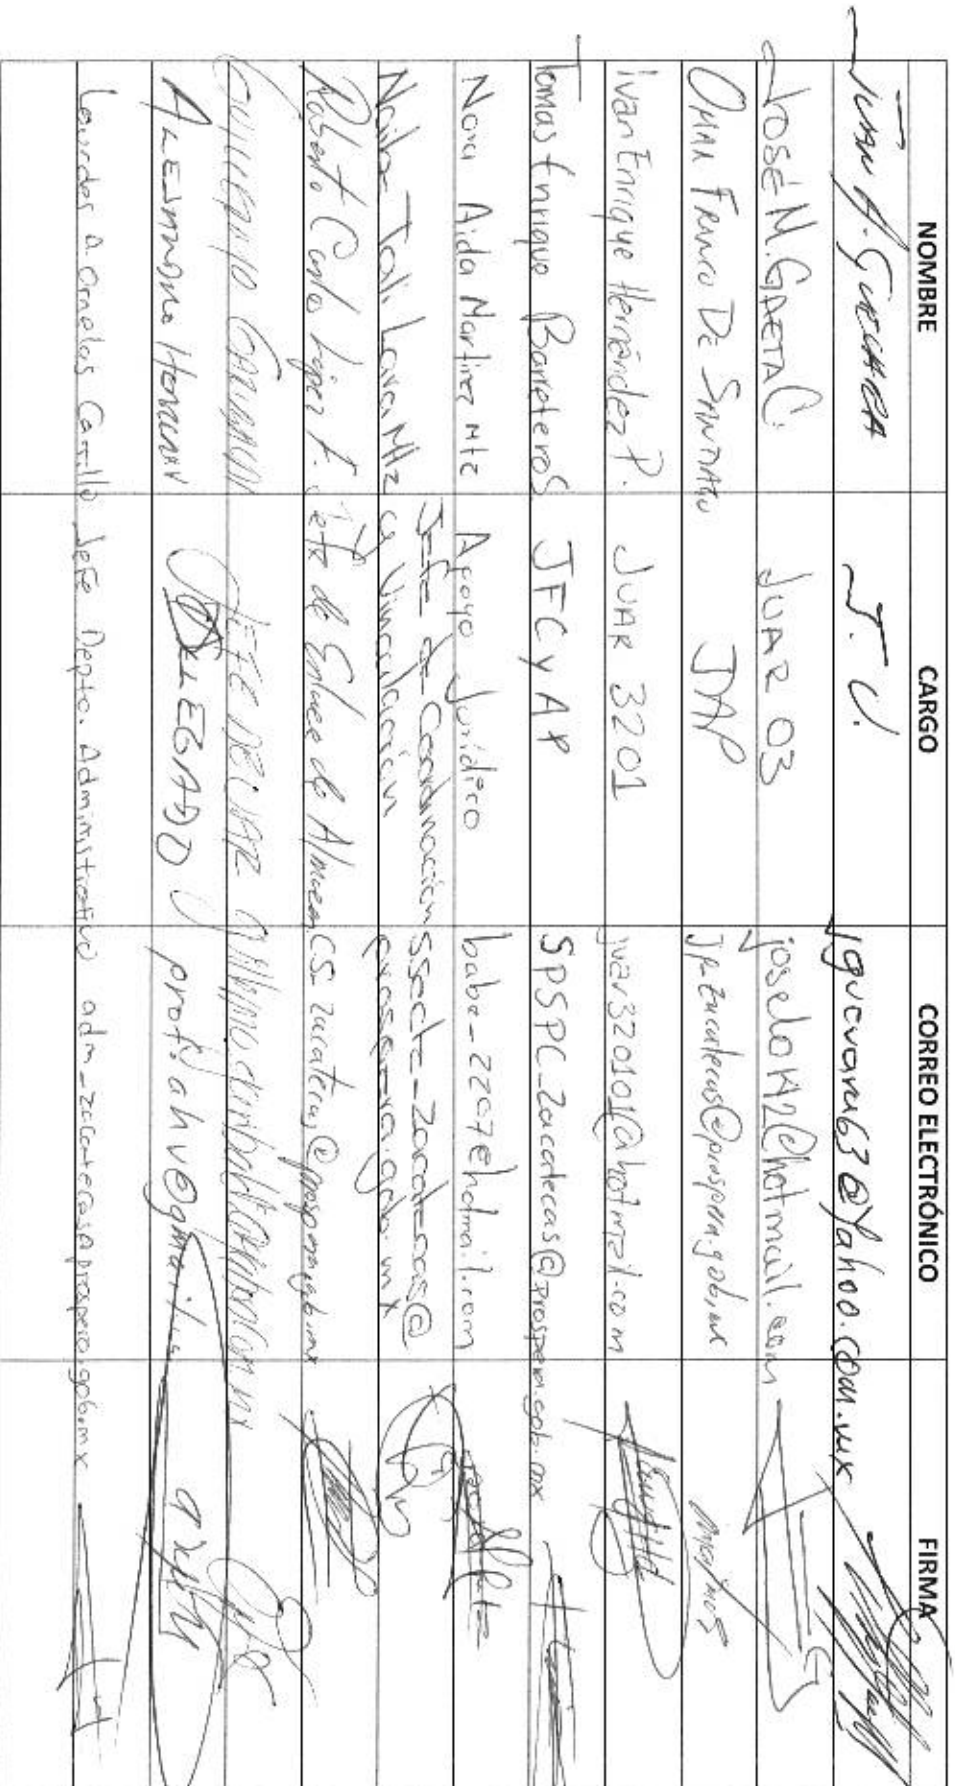 NOMBRE CARGO CORREO ELECTRÓNICO FIRMA
JUAN A. J. U. jguevara63@yahoo.com.mx
JOSÉ M. GAETA C. JUAR 03 joselo142@hotmail.com
OMAR FRANCO DE SANTIAGO JAP
Ivan Enrique Hernández P. JUAR 3201 juar320101@hotmail.com
Tomas Enrique BarreteroS JFCyAP SPSPC_Zacatecas@prospera.gob.mx
Nora Aida Martinez Mtz Apoyo Juridico babe_2207@hotmail.com
Jefe de Coordinacion
Tali Lara Mtz y Vinculacion
Roberto Carlos López F. Jefe de Enlace de Almacen CS_zacatecas@prospera.gob.mx
GUILLERMO JEFE DE UAR
ALEJANDRO DELEGADO prof.ahv@gmail.
Lourdes A Ornelas Carrillo Jefe Depto. Administrativo adm_zacatecas@prospera.gob.mx